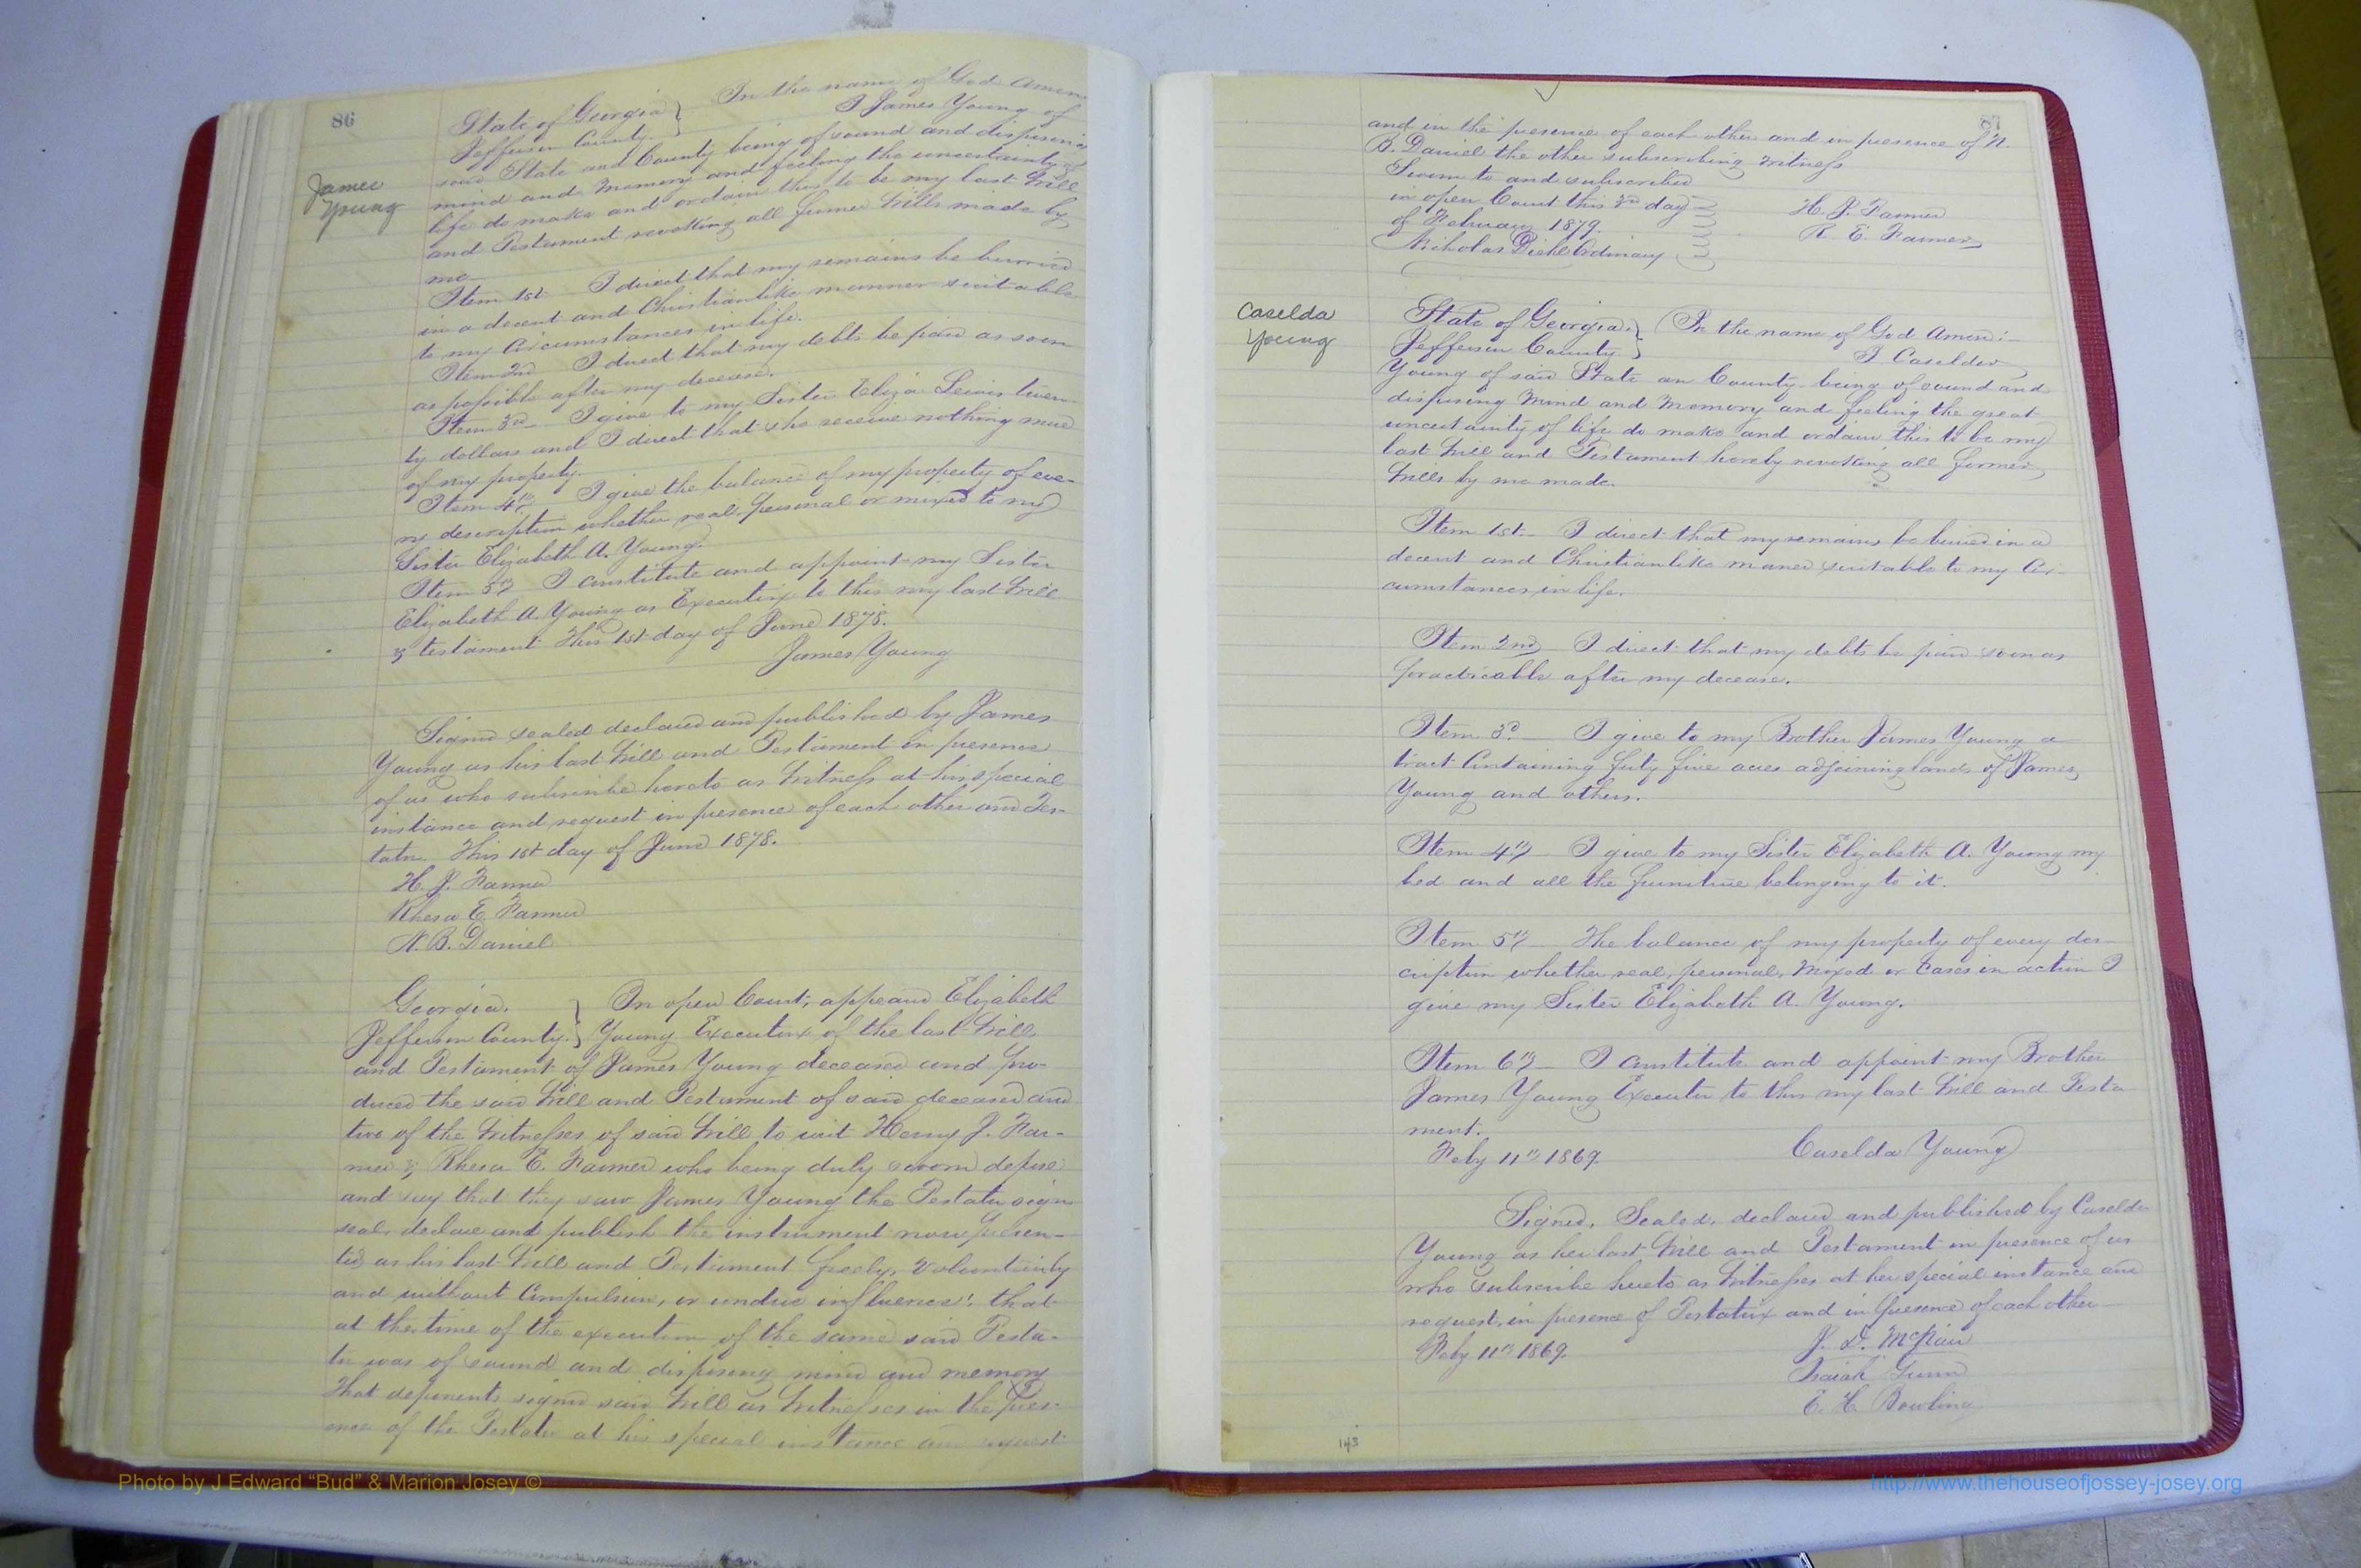 86
James
Young
State of Georgia } In the name of God Amen
Jefferson County. } I James Young of
said State and County being of sound and disposing
mind and memory and feeling the uncertainty of
life do make and ordain this to be my last Will
and Testament revoking all former Wills made by
me
Item 1st I direct that my remains be burried
in a decent and Christianlike manner suitable
to my Circumstances in life.
Item 2nd I direct that my debts be paid as soon
as possible after my decease.
Item 3rd I give to my Sister Eliza Lewis twen-
ty dollars and I direct that she receive nothing more
of my property.
Item 4th I give the balance of my property of eve-
ry description whether real, personal or mixed to my
Sister Elizabeth A. Young.
Item 5th I constitute and appoint my Sister
Elizabeth A. Young as Executrix to this my last Will
& testament This 1st day of June 1878.
James Young
Signed sealed declared and published by James
Young as his last Will and Testament in presence
of us who subscribe hereto as Witness at his special
instance and request in presence of each other and Tes-
tator. This 1st day of June 1878.
H. J. Farmer
Rhesa E. Farmer
N. B. Daniel
Georgia. } In open Court, appeard Elizabeth
Jefferson County. } Young Executrix of the last Will
and Testament of James Young deceased and pro-
duced the said Will and Testament of said deceased and
two of the Witnesses of said Will to wit Henry J. Far-
mer & Rhesa E. Farmer who being duly sworn depose
and say that they saw James Young the Testator sign
seal, declare and publish the instrument now presen-
ted as his last Will and Testament freely, Voluntarily
and without Compulsion, or undue influence; that
at the time of the execution of the same said Testa-
tor was of sound and disposing mind and memory
That deponents signed said Will as Witnesses in the pres-
ence of the Testator at his special instance and request
87
and in the presence of each other and in presence of N.
B. Daniel the other subscribing Witness
Sworn to and subscribed
in open Court this 3rd day H. J. Farmer
of February 1879. R. E. Farmer
Nicholas Diehl Ordinary
Caselda
Young
State of Georgia } In the name of God Amen:
Jefferson County } I Caselder
Young of said State an County being of sound and
disposing Mind and Memory and feeling the great
uncertainity of life do make and ordain this to be my
last Will and Testament hereby revoking all former
Wills by me made.
Item 1st. I direct that my remains be buried in a
decent and Christianlike maner suitable to my Cir-
cumstances in life.
Item 2nd I direct that my debts be paid soon as
practicable after my decease.
Item 3d I give to my Brother James Young a
tract Containing forty five acres adjoining lands of James
Young and others.
Item 4th I give to my Sister Elizabeth A. Young my
bed and all the furniture belonging to it.
Item 5th The balance of my property of every des-
cription whether real, personal, Mixed or Cases in action I
give my Sister Elizabeth A. Young.
Item 6th I constitute and appoint my Brother
James Young Executor to this my last Will and Testa
ment.
Feby 11th 1869. Caselda Young
Signed, Sealed, declared and published by Caselda
Young as her last Will and Testament in presence of us
who subscribe hereto as Witnesses at her special instance and
request, in presence of Testatrix and in presence of each other
Feby 11th 1869. J. D. McNair
Isaiah Gunn
E. H. Bowling
143
Photo by J Edward “Bud” & Marion Josey ©
http://www.thehouseofjossey-josey.org